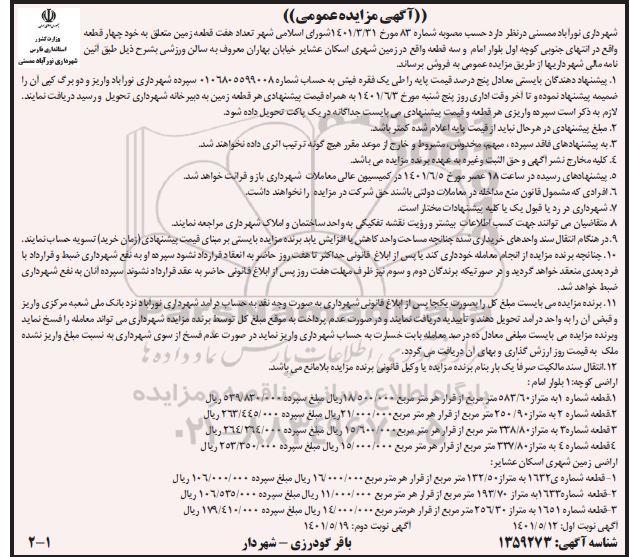 ((آگهی مزایده عمومی))
وزارت کشور
استانداری فارس
شهرداری نورآباد ممسنی
شهرداری نورآباد ممسنی درنظر دارد حسب مصوبه شماره ۸۳ مورخ ۱۴۰۱/۳/۳۱شورای اسلامی شهر تعداد هفت قطعه زمین متعلق به خود چهار قطعه
واقع در انتهای جنوبی کوچه اول بلوار امام و سه قطعه واقع در زمین شهری اسکان عشایر خیابان بهاران معروف به سالن ورزشی بشرح ذیل طبق آئین
نامه مالی شهرداریها از طریق مزایده عمومی به فروش برساند.
۱. پیشنهاد دهندگان بایستی معادل پنج درصد قیمت پایه را طی یک فقره فیش به حساب شماره ۰۱۰۶۸۰۵۵۹۹۰۰۸ سپرده شهرداری نورآباد واریز و دو برگ کپی آن را
ضمیمه پیشنهاد نموده و تا آخر وقت اداری روز پنج شنبه مورخ ۱۴۰۱/۶/۳ به همراه قیمت پیشنهادی هر قطعه زمین به دبیرخانه شهرداری تحویل و رسید دریافت نمایند.
لازم به ذکر است سپرده واریزی هر قطعه و قیمت پیشنهادی می بایست جداگانه در یک پاکت تحویل داده شود.
۲. مبلغ پیشنهادی در هرحال نباید از قیمت پایه اعلام شده کمتر باشد.
۳. به پیشنهادهای فاقد سپرده ، مبهم، مخدوش، مشروط و خارج از موعد مقرر هیچ گونه ترتیب اثری داده نخواهند شد.
۴. کلیه مخارج نشر آگهی و حق الثبت وغیره به عهده برنده مزایده می باشد.
۵. پیشنهادهای رسیده در ساعت ۱۸ عصر مورخ ۱۴۰۱/۶/۵ در کمیسیون عالی معاملات شهرداری باز و قرائت خواهد شد.
۶. افرادی که مشمول قانون منع مداخله در معاملات دولتی باشند حق شرکت در مزایده را نخواهند داشت.
۷. شهرداری در رد یا قبول یک یا کلیه پیشنهادات مختار است.
۸. متقاضیان می توانند جهت کسب اطلاعات بیشتر و رؤیت نقشه تفکیکی به واحد ساختمان و املاک شهرداری مراجعه نمایند.
۹. در هنگام انتقال سند واحدهای خریداری شده چنانچه مساحت واحد کاهش یا افزایش یابد برنده مزایده بایستی بر مبنای قیمت پیشنهادی (زمان خرید) تسویه حساب نمایند.
۱۰. چنانچه برنده مزایده از انجام معامله خودداری کند یا پس از ابلاغ قانونی حداکثر تا هفت روز حاضر به انعقاد قرارداد نشود سپرده او به نفع شهرداری ضبط و قرارداد با
فرد بعدی منعقد خواهد گردید و در صورتیکه برندگان دوم و سوم نیز ظرف مهلت هفت روز پس از ابلاغ قانونی حاضر به عقد قرارداد نشوند سپرده آنان به نفع شهرداری
ضبط خواهد شد.
۱۱. برنده مزایده می بایست مبلغ کل را بصورت یکجا پس از ابلاغ قانونی شهرداری به صورت وجه نقد به حساب درآمد شهرداری نورآباد نزد بانک ملی شعبه مرکزی واریز
و قبض آن را به واحد درآمد تحویل دهند و تأییدیه دریافت نمایند و در صورت عدم پرداخت به موقع مبلغ کل توسط برنده مزایده شهرداری می تواند معامله را فسخ نماید
وبرنده مزایده می بایست مبلغی معادل ده درصد معامله بابت خسارت به حساب شهرداری واریز نماید در صورت عدم فسخ از سوی شهرداری به نسبت مبلغ واریز نشده
ملک به قیمت روز ارزش گذاری و بهای آن دریافت می گردد.
۱۲. انتقال سند مالکیت صرفاً یک بار بنام برنده مزایده یا وکیل قانونی برنده مزایده بلامانع می باشد.
اراضی کوچه۱ بلوار امام :
۱.قطعه ۱به متراژ۵۸۳/۶۰ متر مربع از قرار هر متر مربع ۱۸/۵۰۰/۰۰۰ریال مبلغ سپرده ۵۳۹/۸۳۰/۰۰۰ ریال
۲.قطعه شماره ۲ به متراژ ۲۵۰/۹۰ متر مربع از قرار هرمتر مربع۲۱/۰۰۰/۰۰۰ریال مبلغ سپرده ۲۶۳/۴۴۵/۰۰۰ ریال
۳.قطعه شماره۳ به متراژ ۳۳۸/۸۰ متر مربع از قرار هر متر مربع۱۵/۶۰۰/۰۰۰ریال مبلغ سپرده ۲۶۴/۲۶۴/۰۰۰ ریال
۴قطعه شماره ۴ به متراژ ۳۳۷/۸۰ متر مربع از قرار هر متر مربع۱۵/۰۰۰/۰۰۰ریال مبلغ سپرده ۲۵۳/۳۵۰/۰۰۰ ریال
اراضی زمین شهری اسکان عشایر:
۱-قطعه شماره ی۱۶۳۲به متراژ۱۳۲/۵۰ متر مربع از قرار هر متر مربع ۱۶/۰۰۰/۰۰۰ ریال مبلغ سپرده ۱۰۶/۰۰۰/۰۰۰ ریال
۲-قطعه شماره۱۶۳۳به متراژ ۱۹۳/۷۰ متر مربع از قرار هر متر مربع ۱۱/۰۰۰/۰۰۰ ریال مبلغ سپرده ۱۰۶/۵۳۵/۰۰۰ ریال
۳-قطعه شماره ۱۶۵۱ به متراژ ۲۵۶/۳۰ متر مربع از قرار هر متر مربع ۱۴/۰۰۰/۰۰۰ ریال مبلغ سپرده ۱۷۹/۴۱۰/۰۰۰ ریال
آگهی نوبت اول: ۱۴۰۱/۵/۱۲ آگهی نوبت دوم: ۱۴۰۱/۵/۱۹
شناسه آگهی: ۱۳۵۹۲۷۳ باقر گودرزی – شهردار ۲-۱